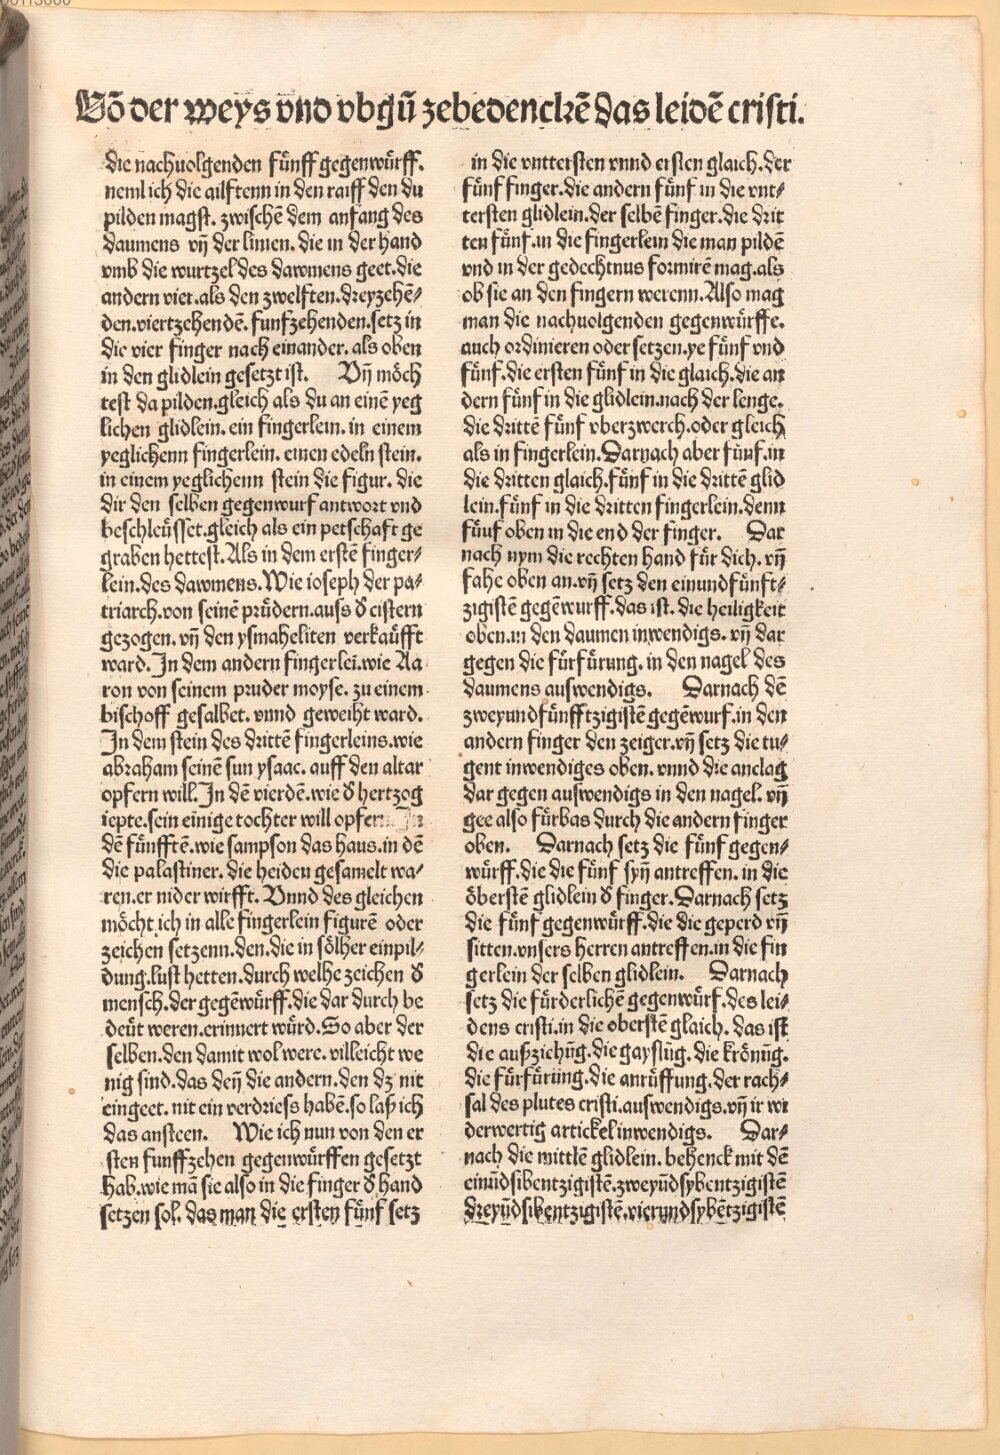 Võ der weys vnd vbgũ zebedenckẽ das leidẽ cristi.
die nachuolgenden fünff gegenwürff.
nemlich die ailfftenn in den raiff den du
pilden magst. zwischẽ dem anfang des
daumens vñ der linien. die in der hand
vmb die wurtzel des dawmens geet. die
andern vier. als den zwelften. dreyzehẽ⸗
den. viertzehendẽ. funfzehenden. setz in
die vier finger nach einander. als oben
in den glidlein gesetzt ist. Vñ möch
test da pilden. gleich als du an einẽ yeg
lichen glidlein. ein fingerlein. in einem
yeglichenn fingerlein. einen edeln stein.
in einem yeglichenn stein die figur. die
dir den selben gegenwurf antwort vnd
beschleüsset. gleich als ein petschaft ge
graben hettest. Als in dem erstẽ finger⸗
lein. des dawmens. Wie ioseph der pa⸗
triarch. von seinẽ prüdern. auss d̕ cistern
gezogen. vñ den ysmaheliten verkaüfft
ward. In dem andern fingerleĩ. wie Aa
ron von seinem pruder moyse. zu einem
bischoff gesalbet. vnnd geweiht ward.
In dem stein des drittẽ fingerleins. wie
abraham seinẽ sun ysaac. auff den altar
opfern will. In dẽ vierdẽ. wie d̕ hertzog
iepte. sein einige tochter will opfern. In
dẽ fünfftẽ. wie sampson das haus. in dẽ
die palastiner. die heiden gesamelt wa⸗
ren. er nider wirfft. Vnnd des gleichen
möcht ich in alle fingerlein figurẽ oder
zeichen setzenn. den. die in sölher einpil⸗
dung. lust hetten. durch welhe zeichen d̕
mensch. der gegẽwürff. die dar durch be
deüt weren. erinnert würd. So aber der
selben. den damit wol were. villeicht we
nig sind. das deñ die andern. den dz nit
eingeet. nit ein verdriess habẽ. so laß ich
das ansteen. Wie ich nun von den er
sten funffzehen gegenwürffen gesetzt
hab. wie mã sie also in die finger d̕ hand
setzen sol. das man die ersten fünf setz
in die vnttersten vnnd ersten glaich. der
fünf finger. die andern fünf in die vnt⸗
tersten glidlein. der selbẽ finger. die drit
ten fünf. in die fingerlein die man pildẽ
vnd in der gedechtnus formirẽ mag. als
ob sie an den fingern werenn. Also mag
man die nachuolgenden gegenwürffe.
auch ordinieren oder setzen. ye fünf vnd
fünf. die ersten fünf in die glaich. die an
dern fünf in die glidlein. nach der lenge.
die drittẽ fünf vberzwerch. oder gleich
als in fingerlein. Darnach aber fünf. in
die dritten glaich. fünf in die drittẽ glid
lein. fünf in die dritten fingerlein. denn
fünf oben in die end der finger. Dar
nach nym die rechten hand für dich. vñ
fahe oben an. vñ setz den einundfünft⸗
zigistẽ gegẽwurff. das ist. die heiligkeit
oben. in den daumen inwendigs. vñ dar
gegen die fürfürung. in den nagel des
daumens auswendigs. Darnach dẽ
zweyundfünfftzigistẽ gegẽwurf. in den
andern finger den zeiger. vñ setz die tu⸗
gent inwendiges oben. vnnd die anclag
dar gegen auswendigs in den nagel. vñ
gee also fürbas durch die andern finger
oben. Darnach setz die fünf gegen⸗
würff. die die fünf syñ antreffen. in die
öberstẽ glidlein d̕ finger. Darnach setz
die fünf gegenwürff. die die geperd vñ
sitten. vnsers herren antreffen. in die fin
gerlein der selben glidlein. Darnach
setz die fürderlichẽ gegenwürf. des lei⸗
dens cristi. in die oberstẽ glaich. das ist
die außziehũg. die gayslũg. die krönũg.
die fürfürüng. die anrüffung. der rach⸗
sal des plutes cristi. auswendigs. vñ ir wi
derwertig artickel inwendigs. Dar⸗
nach die mittlẽ glidlein. behenck mit dẽ
einũdsibentzigistẽ. zweyũdsybentzigistẽ
dreyũdsibentzigistẽ. vierundsybẽtzigistẽ